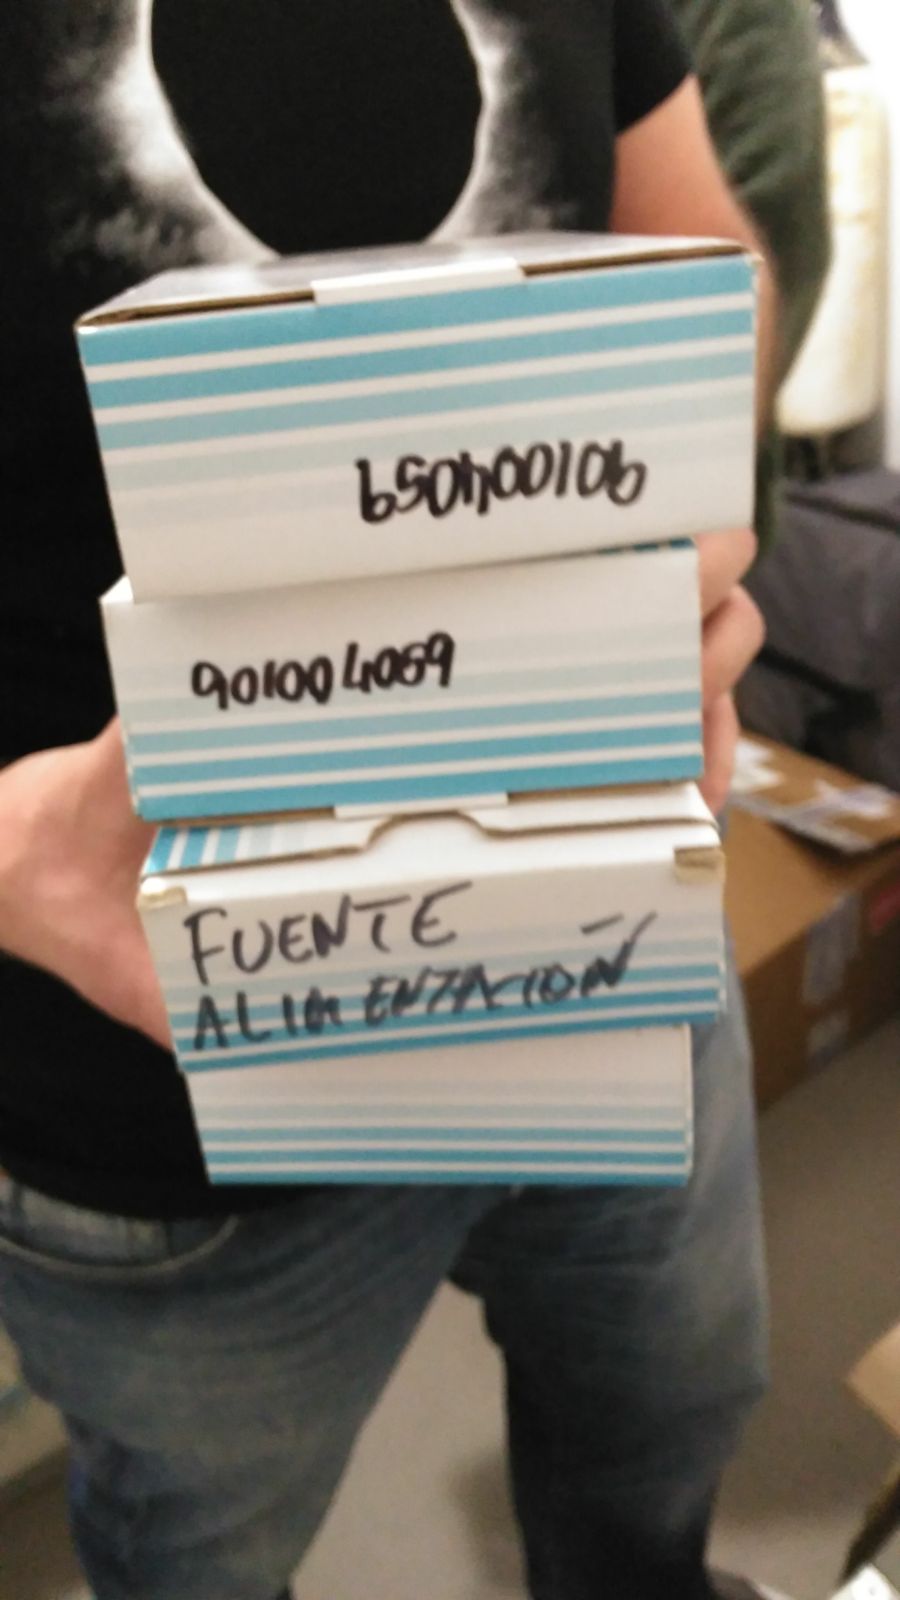 901004059
901004059
FUENTE
ALIMENTACIÓN